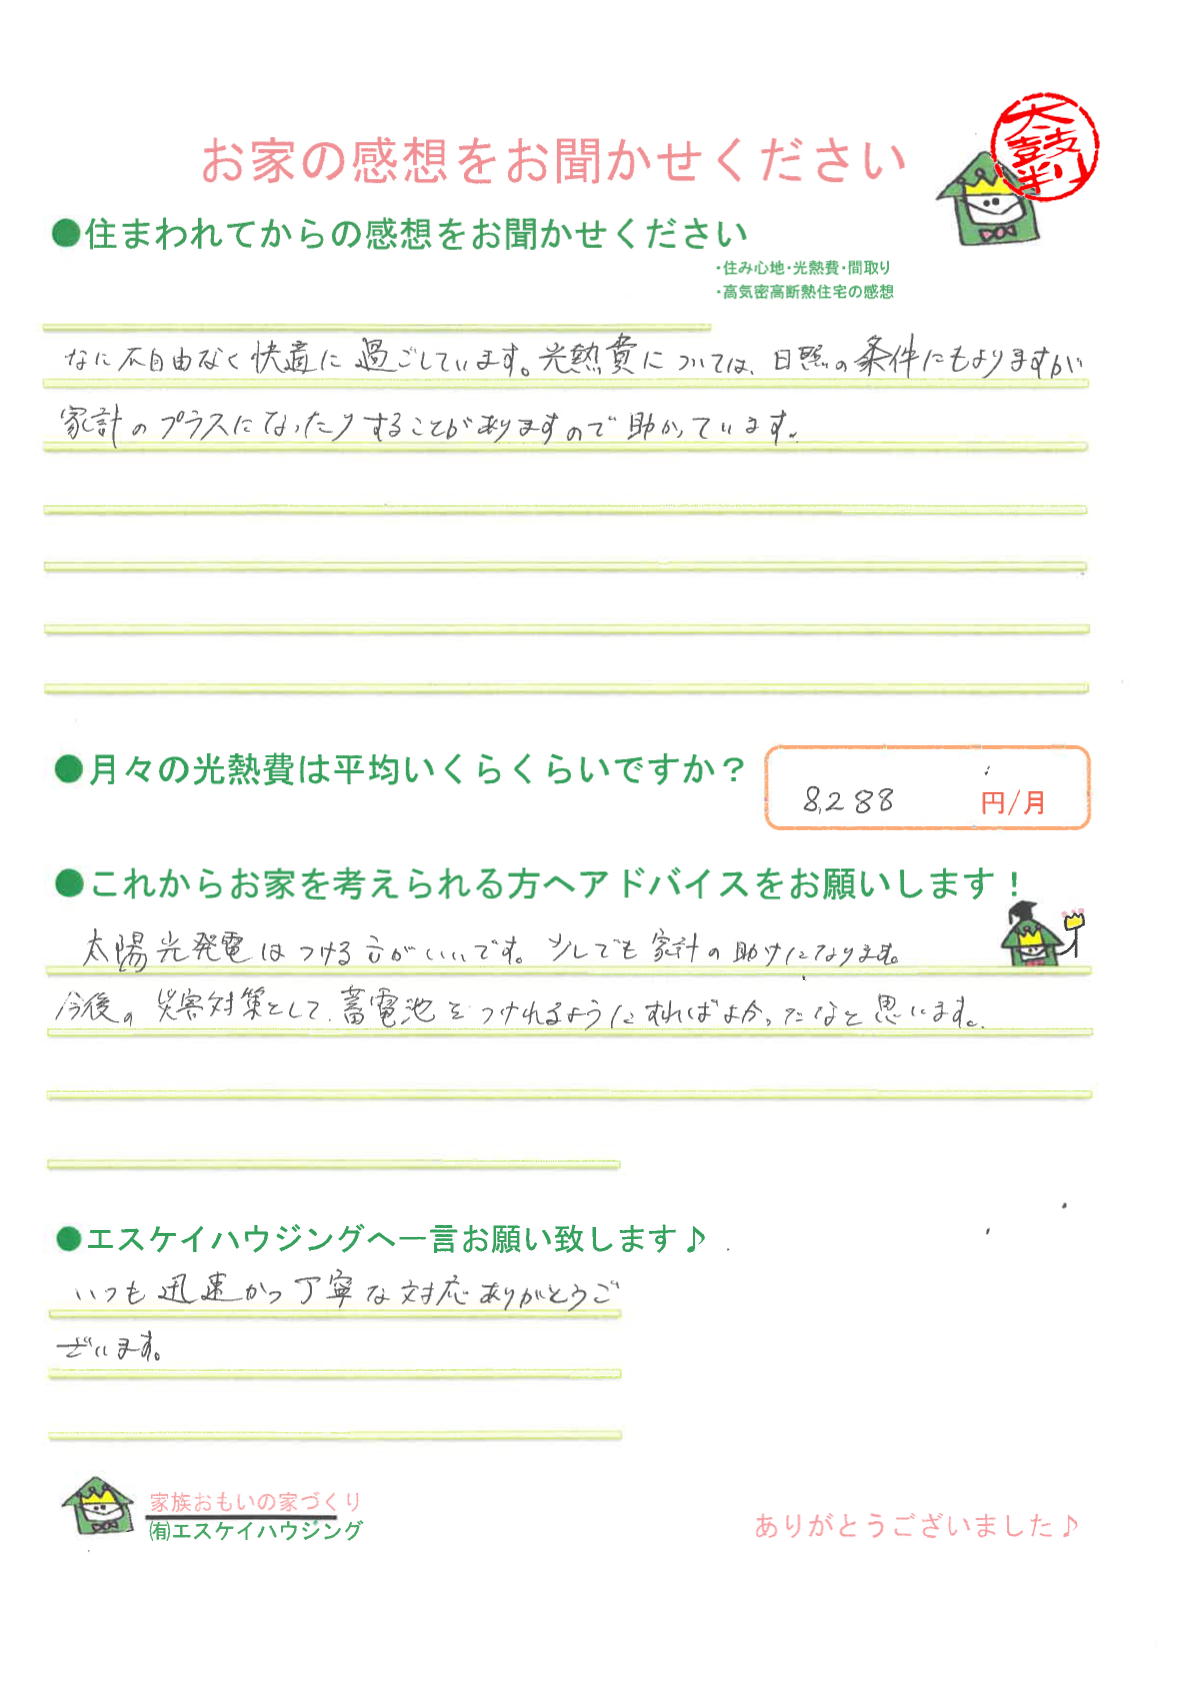 お家の感想をお聞かせください
太鼓判
●住まわれてからの感想をお聞かせください
・住み心地・光熱費・間取り
・高気密高断熱住宅の感想
なに不自由なく快適に過ごしています。光熱費については、日照の条件にもよりますが
家計のプラスになったりすることがありますので助かっています。
●月々の光熱費は平均いくらくらいですか?
8,288 円/月
●これからお家を考えられる方へアドバイスをお願いします!
太陽光発電はつける方がいいです。少しでも家計の助けになります。
今後の災害対策として、蓄電池をつけれるようにすればよかったなと思います。
●エスケイハウジングへ一言お願い致します♪
いつも迅速かつ丁寧な対応ありがとうご
ざいます。
家族おもいの家づくり
㈲エスケイハウジング
ありがとうございました♪